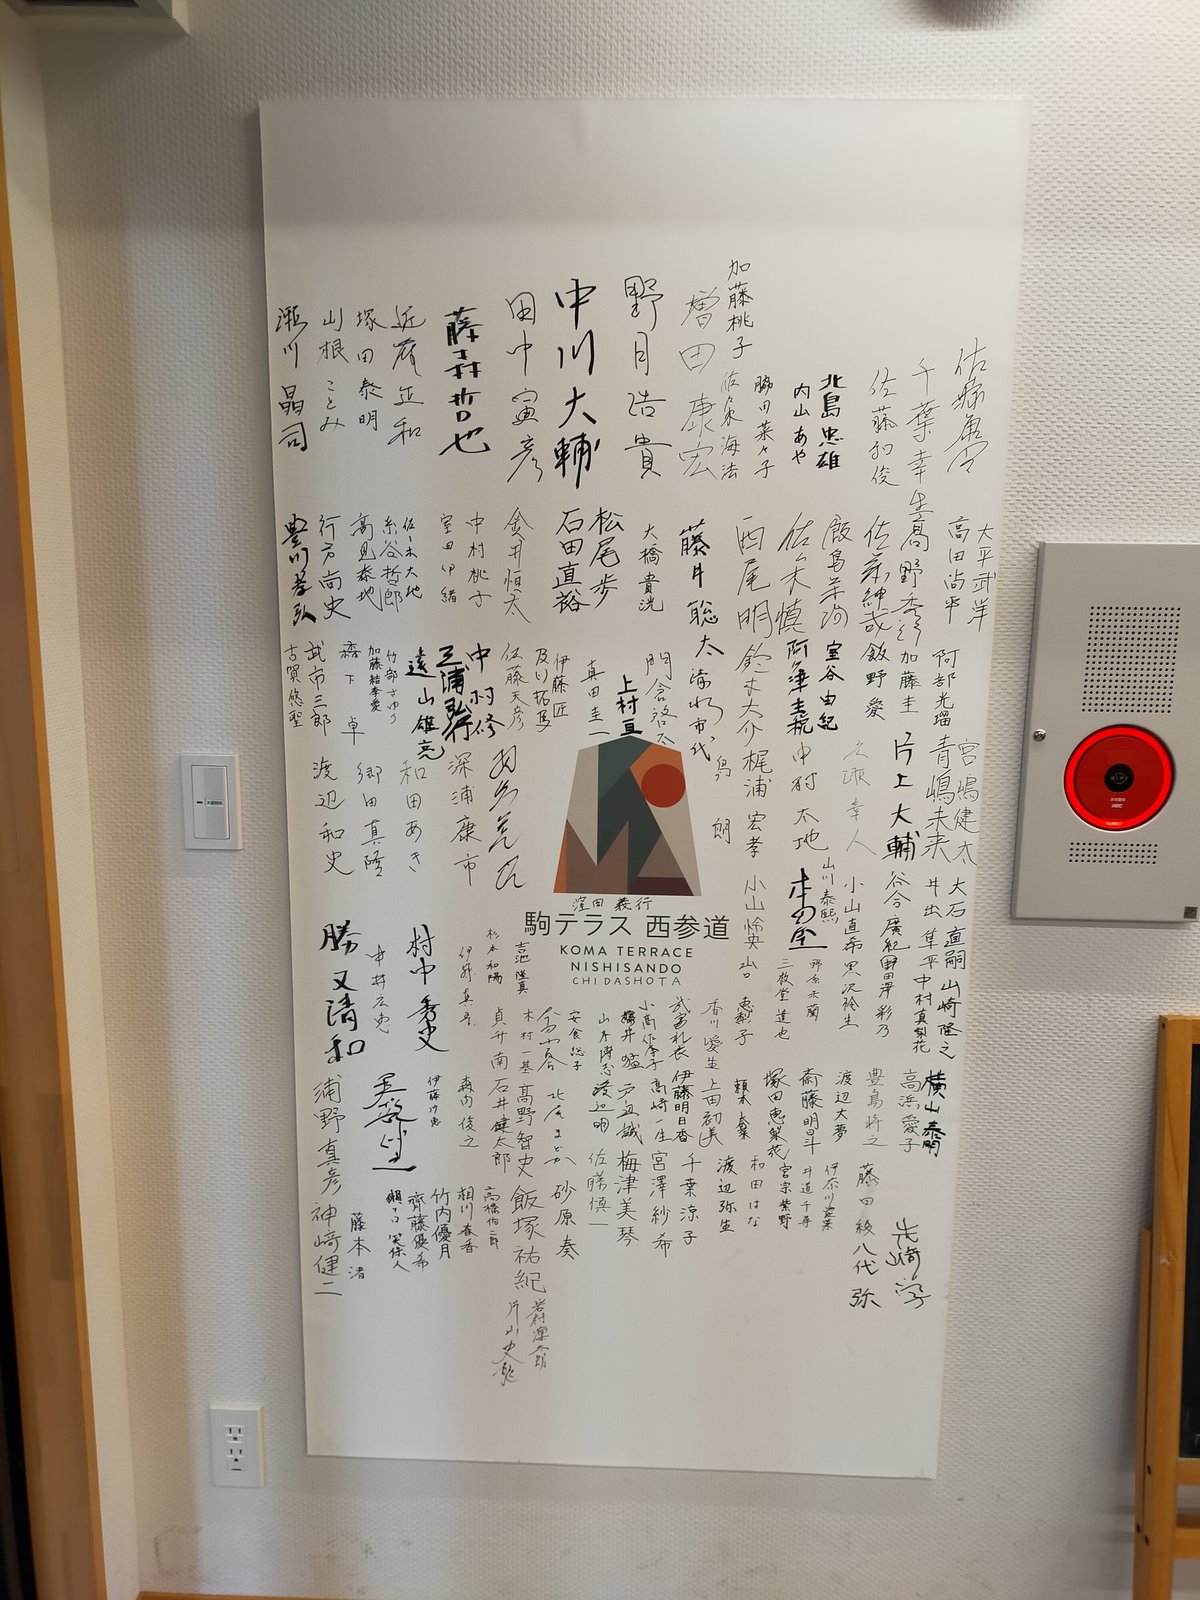 加藤桃子
千葉幸生
佐藤和俊
北島忠雄
内山あや
脇田菜々子
増田康宏
野月浩貴
中川大輔
田中寅彦
藤森哲也
近藤正和
塚田泰明
山根ことみ
瀬川晶司
大平武洋
高田尚平
高野秀行
佐藤紳哉
飯島栄治
佐々木慎
西尾明
藤井聡太
大橋貴洸
松尾歩
石田直裕
金井恒太
中村桃子
室田伊緒
佐々木大地
糸谷哲郎
高見泰地
行方尚史
豊川孝弘
阿部光瑠
加藤圭
飯野愛
室谷由紀
阿久津主税
鈴木大介
清水市代
門倉啓太
上村亘
真田圭一
伊藤匠
及川拓馬
佐藤天彦
中村修
三浦弘行
遠山雄亮
竹部さゆり
加藤結李愛
森下卓
武市三郎
古賀悠聖
宮嶋健太
青嶋未来
片上大輔
広瀬章人
中村太地
梶浦宏孝
島朗
羽生善治
深浦康市
和田あき
郷田真隆
渡辺和史
窪田義行
駒テラス 西参道
KOMA TERRACE
NISHISANDO
CHIDASHOTA
大石直嗣
井出隼平
谷合廣紀
小山直希
山川泰熙
小山怜央
山崎隆之
中村真梨花
田澤彩乃
黒沢玲生
野原未蘭
三枚堂達也
山口恵梨子
香川愛生
武富礼衣
小高佐季子
山本博志
安食総子
木村一基
貞升南
古池隆真
杉本和陽
伊藤真吾
村中秀史
中井広恵
勝又清和
横山泰明
高浜愛子
豊島将之
渡辺大夢
斎藤明日斗
塚田恵梨花
頼本奈菜
上田初美
伊藤明日香
高崎一生
戸辺誠
渡辺明
北尾まどか
高野智史
石井健太郎
森内俊之
伊藤沙恵
浦野真彦
先崎学
藤田綾
八代弥
伊奈川愛菓
井道千尋
宮宗紫野
和田はな
渡辺弥生
千葉涼子
宮澤紗希
梅津美琴
佐藤慎一
砂原奏
飯塚祐紀
高橋佑二郎
相川春香
竹内優月
齊藤優希
藤本渚
神崎健二
岩村凛太朗
片山史龍